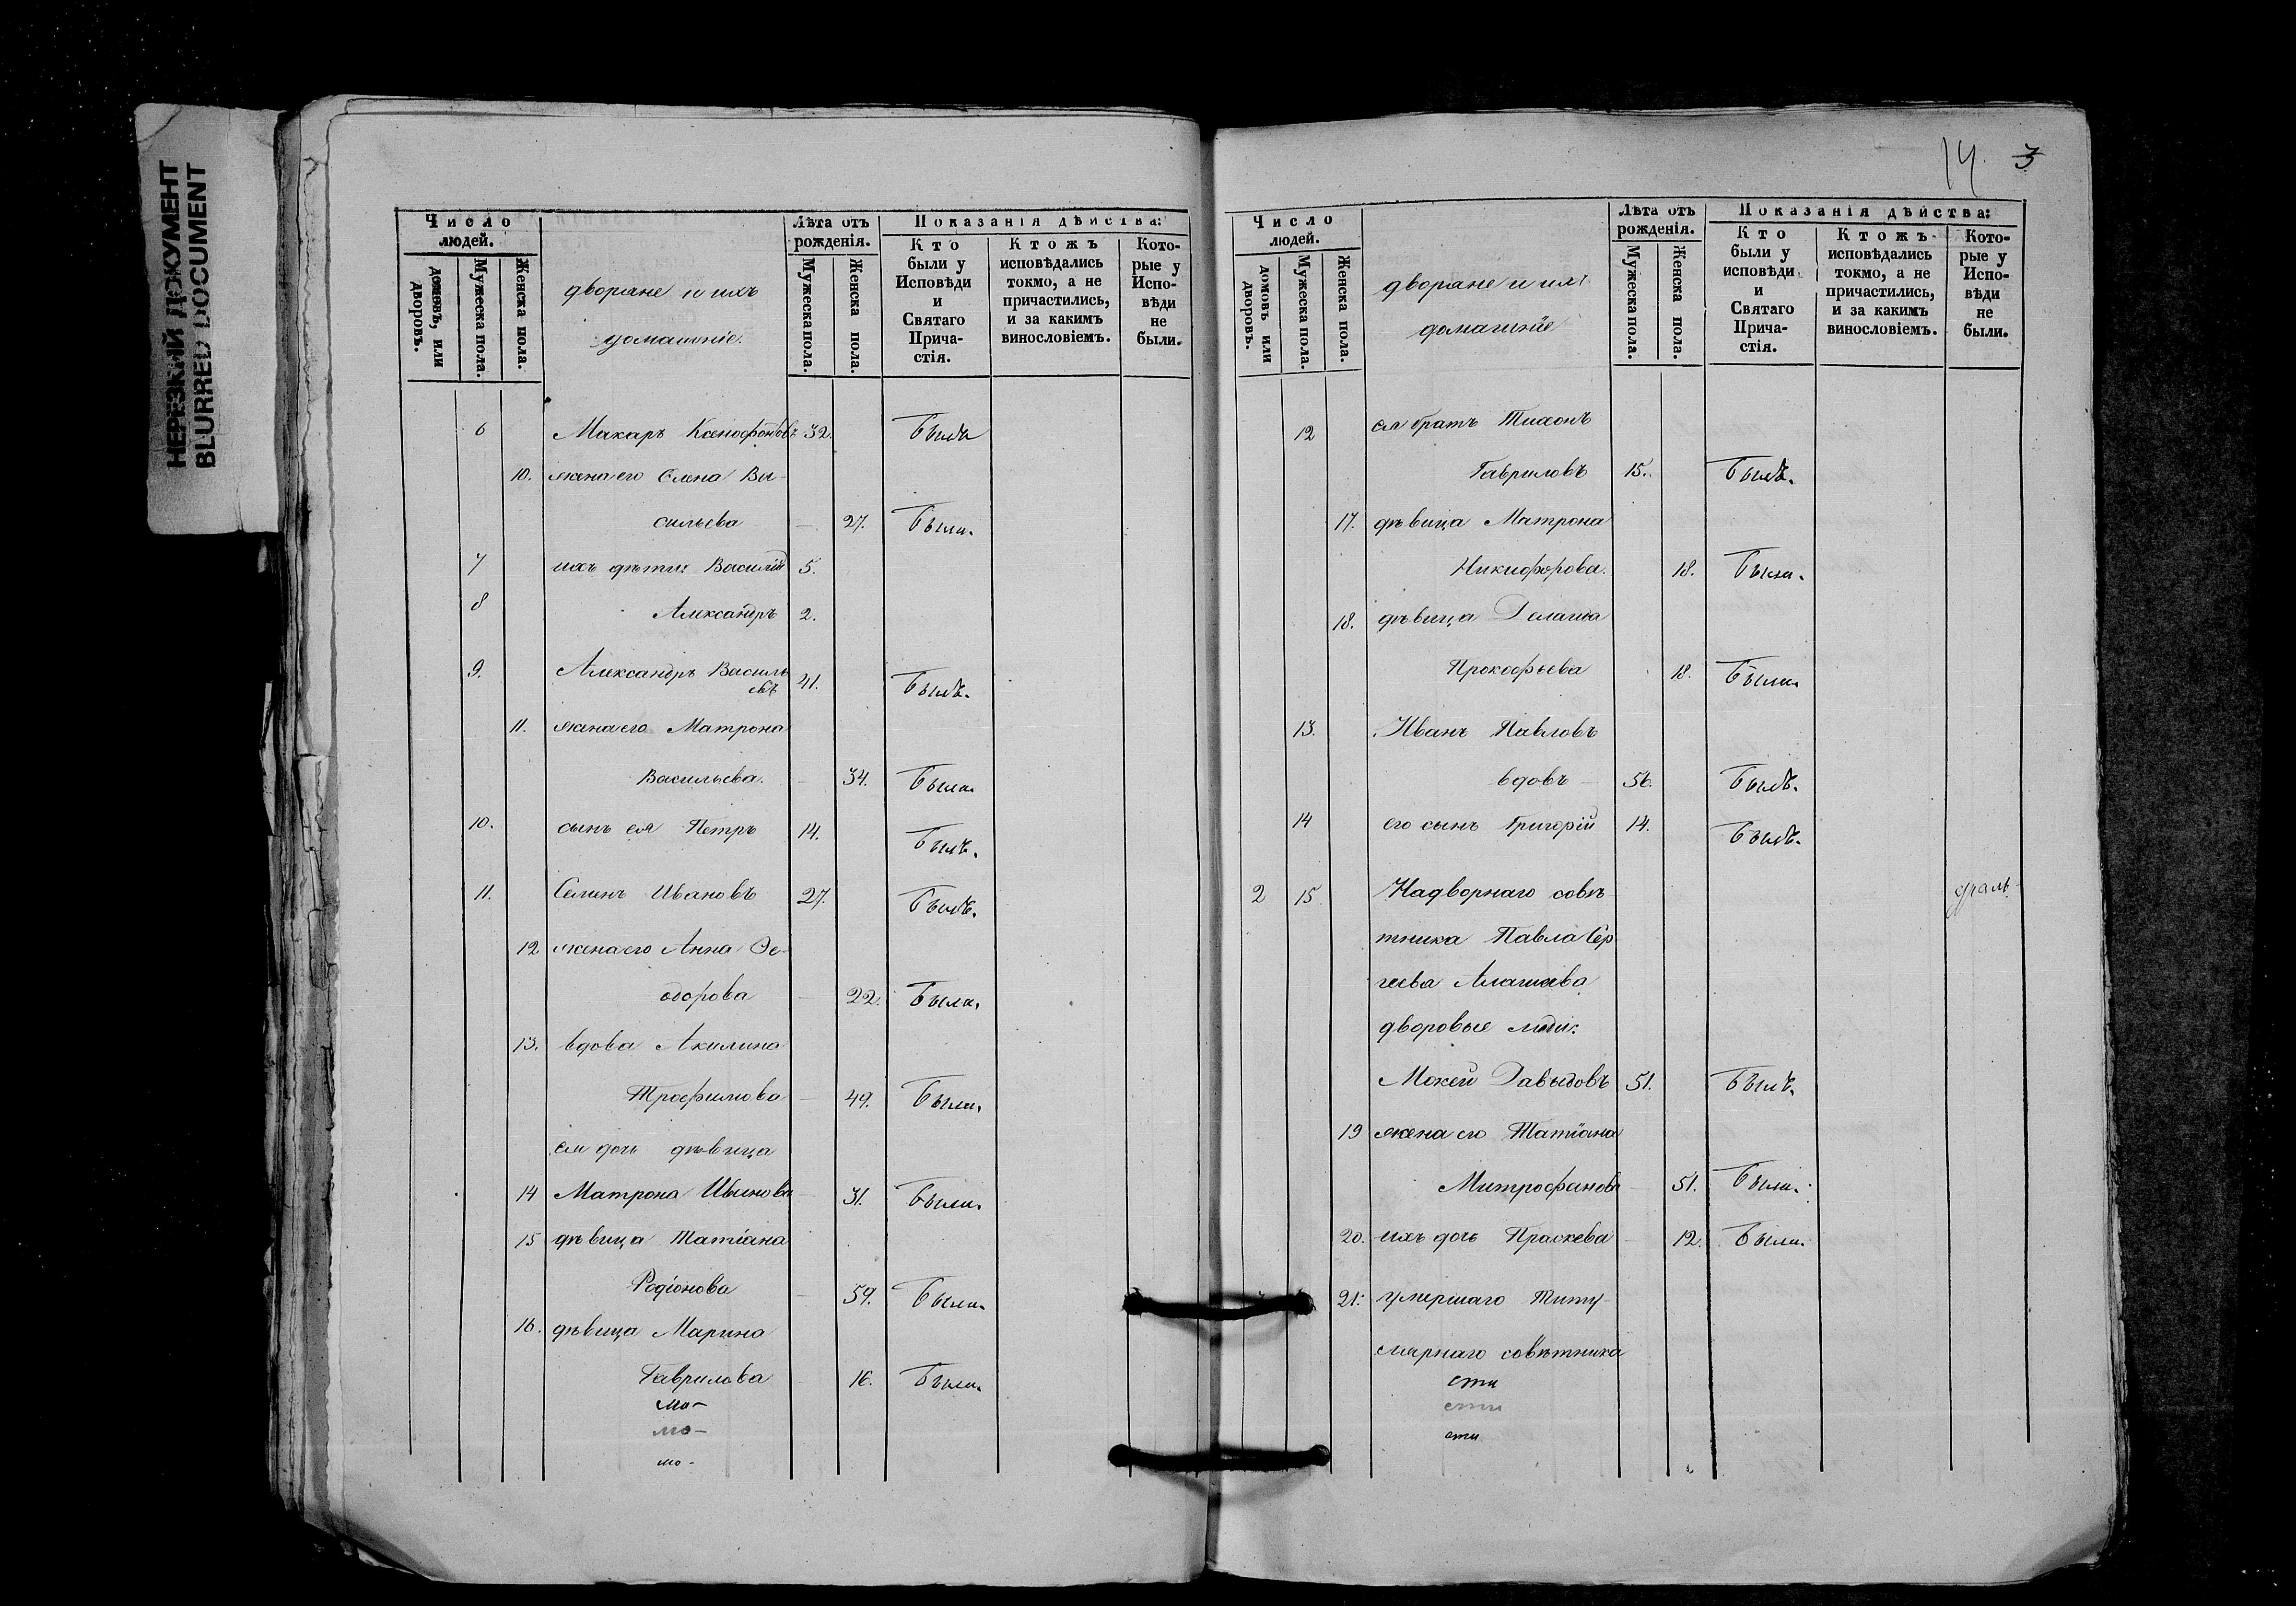 НЕРЕЗКИЙ ДОКУМЕНТ
BLURRED DOCUMENT
Число людей. Лѣта отъ рожденія. Показанія дѣйства:
домовъ, или дворовъ. Мужеска пола. Женска пола. дворяне и ихъ домашніе. Мужеска пола. Женска пола. Кто были у Исповѣди и Святаго Причастія. Ктожъ исповѣдались токмо, а не причастились, и за какимъ винословіемъ. Которые у Исповѣди не были.
6 Макаръ Ксенофонтовъ 32. Былъ
10. жена его Елена Ва-
сильева — 27. Была.
7 ихъ дѣти: Василій 5.
8 Александръ 2.
9. Александръ Василь
евъ 41. Былъ.
11. жена его Матрона
Васильева. — 34. Была.
10. сынъ ея Петръ 14. Былъ.
11. Ивановъ 27. Былъ.
12 жена его Анна Ѳе-
одорова — 22. Была.
13. вдова Акилина
Трофимова — 49. Была.
ея дочь дѣвица
14 Матрона Иванова — 31. Была.
15 дѣвица Татіана
Родіонова — 59. Была.
16. дѣвица Марина
Гаврилова — 16. Была.
мо-
мо-
мо-
14. 3
Число людей. Лѣта отъ рожденія. Показанія дѣйства:
домовъ или дворовъ. Мужеска пола. Женска пола. дворяне и ихъ домашніе Мужеска пола. Женска пола. Кто были у исповѣди и Святаго Причастія. Ктожъ исповѣдались токмо, а не причастились, и за какимъ винословіемъ. Которые у Исповѣди не были.
12 ея братъ Тихонъ
Гавриловъ 15. Былъ.
17. дѣвица Матрона
Никифорова. 18. Была.
18. дѣвица
Прокофьева 18. Была.
13. Иванъ Павловъ
вдовъ — 56. Былъ.
14 его сынъ Григорій 14. Былъ.
2 15 Надворнаго совѣ-
тника Павла Сер-
геева
дворовые люди:
Мокей Давыдовъ 51. Былъ.
19 жена его Татіана
Митрофанова — 51. Была.
20. ихъ дочь Праскева — 12. Была.
21. умершаго Титу-
лярнаго совѣтника
сти
сти
сти